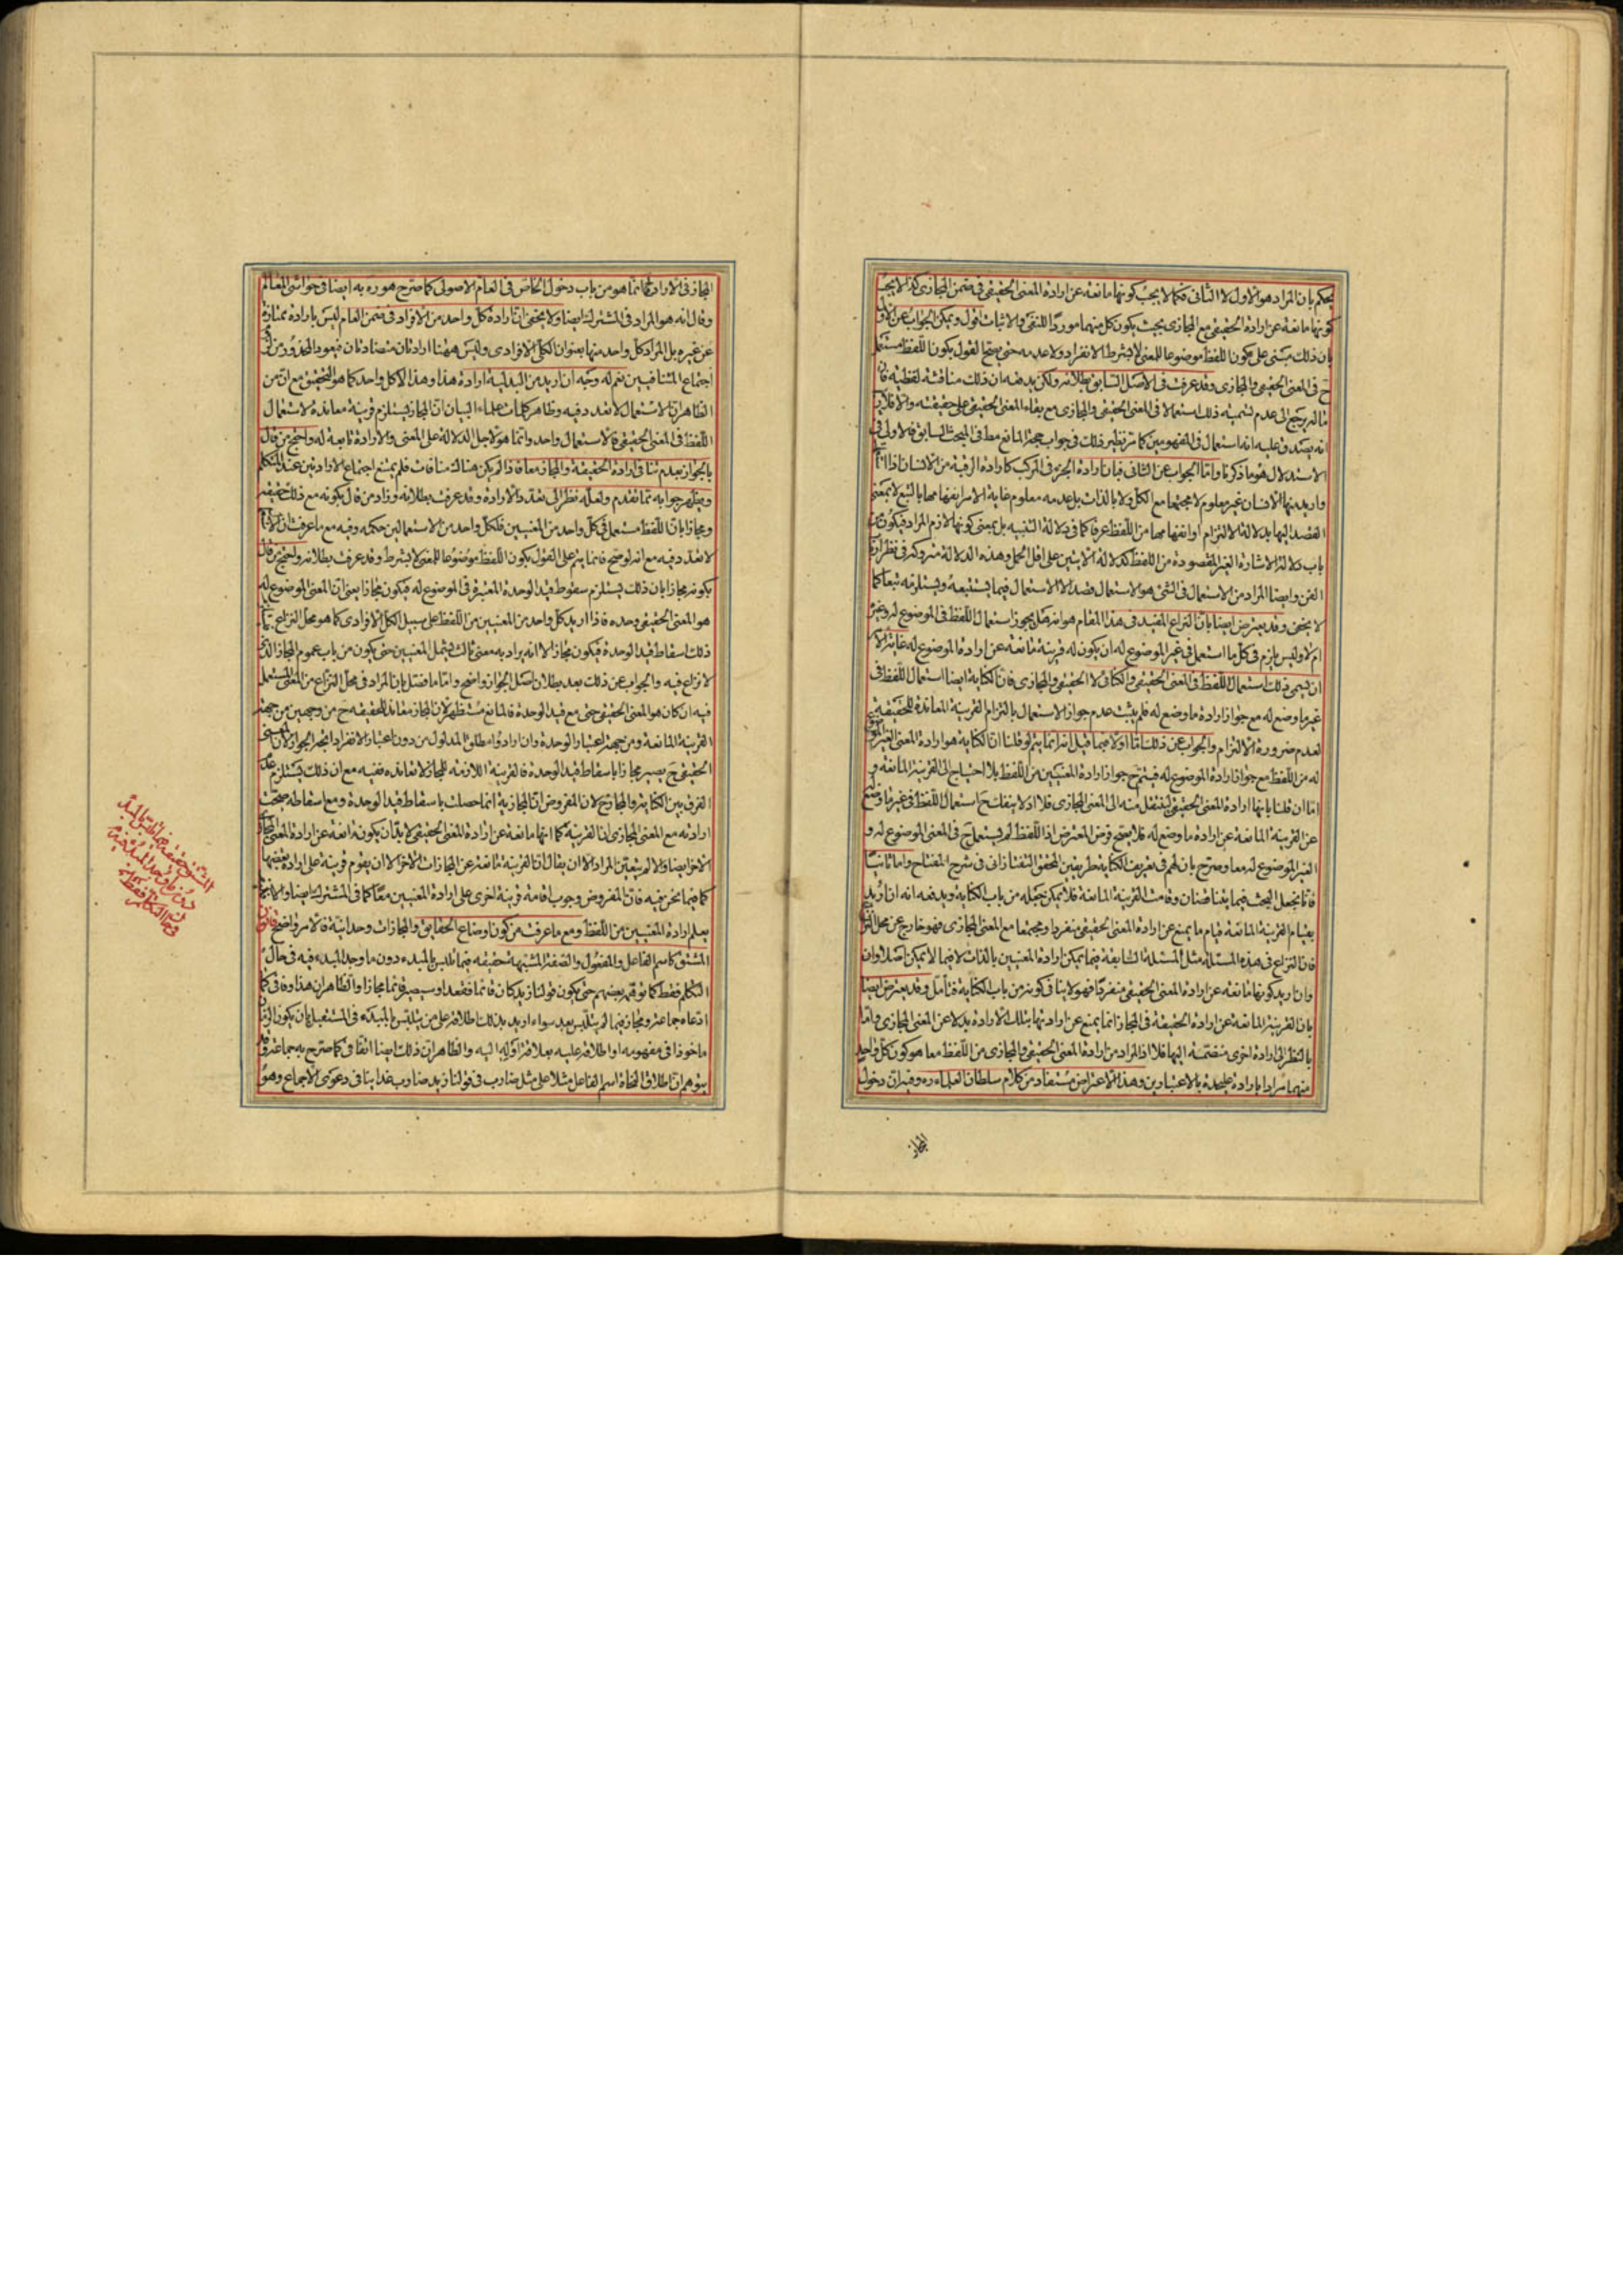 يحكم بان المراد هو الاول لا الثانى فكما لا يجب كونها مانعة عن ارادة المعنى الحقيقى فى ضمن المجازى كذا لا يجب
كونها مانعة عن ارادة الحقيقى مع المجازى بحيث يكون كل منهما موردا للنفى والاثبات اقول ويمكن الجواب عن الاول
بان ذلك مبنى على كون اللفظ موضوعا للمعنى لا بشرط الانفراد ولا عدمه حتى يصح القول بكون اللفظ مستعملا
ح فى المعنى الحقيقى والمجازى وقد عرفت فى الاصل السابق بطلانه ولكن يدفعه ان ذلك مناقشة لفظية فان
مآله يرجع الى عدم تسمية ذلك استعمالا فى المعنى الحقيقى والمجازى مع بقاء المعنى الحقيقى على حقيقته والا فلا ريب
انه يصدق عليه انه استعمال فى المفهومين كما مر نظير ذلك فى جواب حجة المانع مط فى المبحث السابق فالاولى فى
الاستدلال هو ما ذكرنا واما الجواب عن الثانى فبان ارادة الجزء فى المركب كارادة الرقبة من الانسان اذا
واريد منها الانسان غير معلوم لا مجتمعا مع الكل ولا بالذات بل عدمه معلوم غاية الامر انفهامها بالتبع لا بمعنى
القصد اليها بدلالة الالتزام او انفهامها من اللفظ عرفا كما فى دلالة التنبيه بل بمعنى كونها لازم المراد فيكون من
باب دلالة الاشارة الغير المقصودة من اللفظ كدلالة الآيتين على اقل الحمل وهذه الدلالة متروكة فى نظر ارباب
الفن وايضا المراد من الاستعمال فى الشئ هو الاستعمال قصدا لا الاستعمال فيما يستتبعه ويستلزمه تبعا كما
لا يخفى وقد يعترض ايضا بان النزاع المقيد فى هذا المقام هو انه هل يجوز استعمال اللفظ فى الموضوع له وغيره
ام لا وليس يلزم فى كل ما استعمل فى غير الموضوع له ان يكون له قرينة مانعة عن ارادة الموضوع له غاية الامر
ان يسمى ذلك استعمال اللفظ فى المعنى الحقيقى والكنائى لا الحقيقى والمجازى فان الكناية ايضا استعمال اللفظ فى
غير ما وضع له مع جواز ارادة ما وضع له فلم يثبت عدم جواز الاستعمال بالتزام القرينة المعاندة للحقيقة
لعدم ضرورة الالتزام والجواب عن ذلك اما اولا فيما قيل انه انما يتم لو قلنا ان الكناية هو ارادة المعنى الغير الموضوع
له من اللفظ مع جواز ارادة الموضوع له فيتم ح جواز ارادة المعنيين من اللفظ بلا احتياج الى القرينة المانعة و
اما ان قلنا بانها ارادة المعنى الحقيقى لينتقل منه الى المعنى المجازى فلا اذ لا ينفك ح استعمال اللفظ فى غير ما وضع
عن القرينة المانعة عن ارادة ما وضع له فلا يصح فرض المعترض اذ اللفظ لم يستعمل ح فى المعنى الموضوع له و
الغير الموضوع له معا وصرح بان لهم فى تعريف الكناية طريقين المحقق التفتازانى فى شرح المفتاح واما ثانيا
فانا نجعل البحث فيما يتناقضان وقامت القرينة المانعة فلا يمكن جعله من باب الكناية ويدفعه انه ان اريد
بقيام القرينة المانعة قيام ما يمنع عن ارادة المعنى الحقيقى منفردا ومجتمعا مع المعنى المجازى فهو خارج عن محل النزاع
فان النزاع فى هذه المسئلة مثل المسئلة السابقة فيما يمكن ارادة المعنيين بالذات لا فيما لا يمكن اصلا وان
وان اريد كونها مانعة عن ارادة المعنى الحقيقى منفردا فهو لا ينافى كونه من باب الكناية فتأمل وقد يعترض ايضا
بان القرينة المانعة عن ارادة الحقيقة فى المجاز انما يمنع عن ارادتها بتلك الارادة بدلا عن المعنى المجازى واما
بالنظر الى ارادة اخرى منضمة اليها فلا اذ المراد من ارادة المعنى الحقيقى والمجازى من اللفظ معا هو كون كل واحد
منهما مرادا بارادة عليحدة بالاعتبارين وهذا الاعتراض مستفاد من كلام سلطان العلماء ره وفيه ان دخول
المجاز
المجاز فى الارادة انما هو من باب دخول الخاص فى العام الاصولى كما صرح هو ره به ايضا فى حواشى المعالم
وقال انه هو المراد فى المشترك ايضا ولا يخفى ان ارادة كل واحد من الافراد فى ضمن العام ليس بارادة ممتازة
عن غيره بل المراد كل واحد منها بعنوان الكلى الافرادى وليس ههنا ارادتان متضادتان فيعود المحذور من
اجتماع المتنافيين نعم له وجه ان اريد من البدلية ارادة هذا وهذا لا كل واحد كما هو التحقيق مع ان من
الظاهر ان الاستعمال لا تعدد فيه وظاهر كلمات علماء البيان ان المجاز يستلزم قرينة معاندة لاستعمال
اللفظ فى المعنى الحقيقى فالاستعمال واحد وانما هو لاجل الدلالة على المعنى والارادة تابعة له واحتج من قال
بالجواز بعدم تنافى ارادة الحقيقة والمجاز معا فاذا لم يكن هناك منافات فلم يمتنع اجتماع الارادتين عند المتكلم
ويظهر جوابه مما تقدم ولعله نظر الى تعدد الارادة وقد عرفت بطلانه وزاد من قال بكونه مع ذلك حقيقة
ومجازا بان اللفظ مستعمل فى كل واحد من المعنيين فلكل واحد من الاستعمالين حكمه وفيه مع ما عرفت ان
لا تعدد فيه مع انه لو صح فانما يتم على القول بكون اللفظ موضوعا للمعنى لا بشرط وقد عرفت بطلانه واحتج من قال
بكونه مجازا بان ذلك يستلزم سقوط قيد الوحدة المعتبرة فى الموضوع له فيكون مجازا يعنى ان المعنى الموضوع له
هو المعنى الحقيقى وحده فاذا اريد كل واحد من المعنيين من اللفظ على سبيل الكل الافرادى كما هو محل النزاع
ذلك اسقاط قيد الوحدة فيكون مجازا لا انه يراد به معنى ثالث يشمل المعنيين حتى يكون من باب عموم المجاز الذى
لا نزاع فيه والجواب عن ذلك بعد بطلان اصل الجواز واضح واما ما فصل بان المراد فى محل النزاع من المعنى المستعمل
فيه ان كان هو المعنى الحقيقى حتى مع قيد الوحدة فالمانع مستظهر لان المجاز معاند للحقيقة ح من وجهين من جهة
القرينة المانعة ومن جهة اعتبار الوحدة وان ارادوا مطلق المدلول من دون اعتبار الانفراد اتجه الجواز لان المعنى
الحقيقى ح يصير مجازا باسقاط قيد الوحدة فالقرينة اللازمة للمجاز لا تعانده ففيه مع ان ذلك يستلزم عدم
الفرق بين الكناية والمجاز ح لان المفروض ان المجازية انما حصلت باسقاط قيد الوحدة ومع اسقاطه صحت
ارادته مع المعنى المجازى ان القرينة كما انها مانعة عن ارادة المعنى الحقيقى لا بد ان يكون مانعة عن ارادة المعنى المجازى
الاخر ايضا والا لم يتعين المراد الا ان يقال ان القرينة مانعة عن المجازات الاخر الا ان يقوم قرينة على ارادة بعضها
كما فيما نحن فيه فان المفروض وجوب اقامة قرينة اخرى على ارادة المعنيين معا كما فى المشترك ايضا والا
يعلم ارادة المعنيين من اللفظ ومع ما عرفت من كون اوضاع الحقايق والمجازات وحدانية فالامر واضح قانون
المشتق كاسم الفاعل والمفعول والصفة المشبهة حقيقة فيما تلبس بالمبدء دون ما وجد المبدء فيه فى حال
التكلم فقط كما توهمه بعضهم حتى يكون قولنا زيد كان قائما فقعد او سيصير قائما مجازا والظاهر ان هذا وفاقى كما
ادعاه جماعة ومجاز فيما لم يتلبس بعد سواء اريد بذلك اطلاقه على من يتلبس بالمبدء فى المستقبل بان يكون الزمان
ماخوذا فى مفهومه او اطلاقه عليه بعلاقة اوله اليه والظاهر ان ذلك ايضا اتفاقى كما صرح به جماعة وقد
يتوهم ان اطلاق النحاة اسم الفاعل مثلا على مثل ضارب فى قولنا زيد ضارب غدا ينافى دعوى الاجماع وهو
المشتق حقيقة فيما تلبس بالمبدء
دون ما وجد المبدء فيه
فى حال التكلم فقط